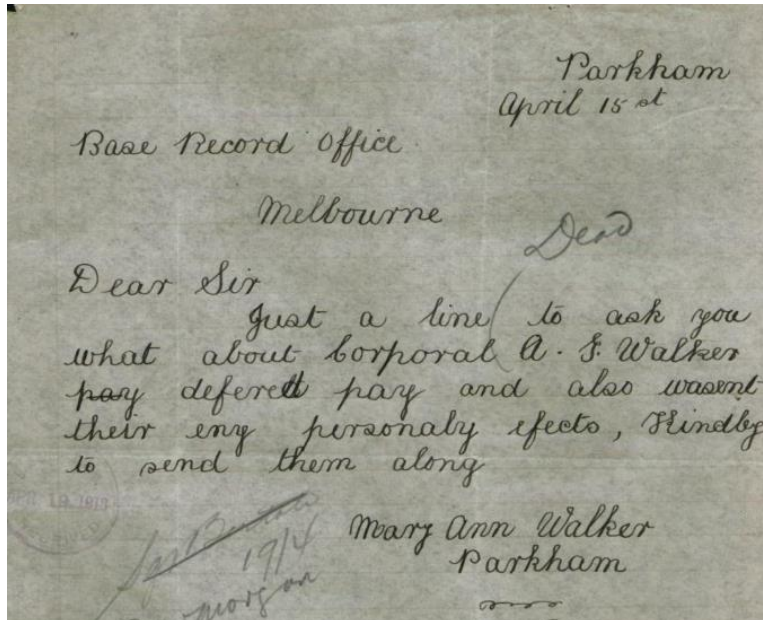 Parkham
April 15 st
Base Record Office
Melbourne
Dead
Dear Sir
Just a line to ask you
what about Corporal A. F. Walker
pay deferett pay and also wasent
their eny personaly efects, Kindly
to send them along
19/4
morgan
Mary Ann Walker
Parkham